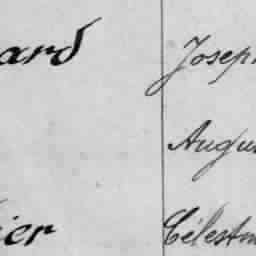 ard Joseph
Augu
ier Célestin